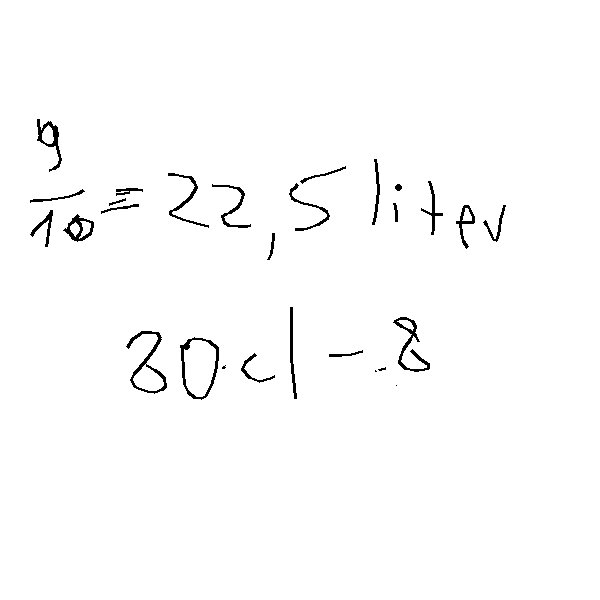 9/10 = 22,5 liter
80cl - .8